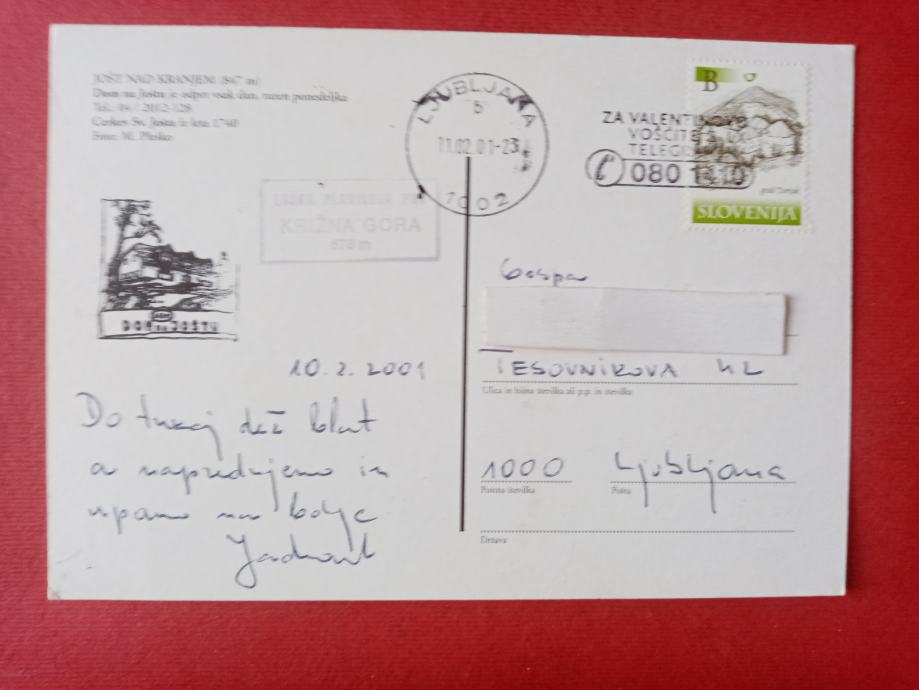 JOŠT NAD KRANJEM (847 m)
Dom na Joštu je odprt vsak dan, razen ponedeljka
Tel.: 04 / 2012-128
Cerkev Sv. Jošta iz leta 1740
Foto: M. Pleško
LJUBLJANA
b
11.02.01-23
1002
ZA VALENTINOVO
VOŠČITE S
TELEG
080 1410
B
grad Turjak
SLOVENIJA
LOŠKA PLANINSKA POT
KRIŽNA GORA
678 m
DOM na JOŠTU
Gospa
TESOVNIKOVA 42
Ulica in hišna številka ali p.p. in številka
1000 Ljubljana
Poštna številka Pošta
Država
10.2.2001
Do tukaj dež blat
a napredujemo in
upamo na bolje